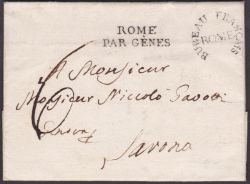 ROME
PAR GÈNES
BUREAU FRANÇAIS
ROME
A Monsieur
Monsieur Niccolò
Savona